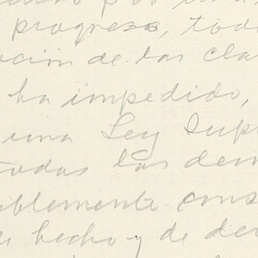 progreso, tod
ción de las cla
ha impedido,
una Ley Sup
todas las dem
blemente cons
hecho y de de